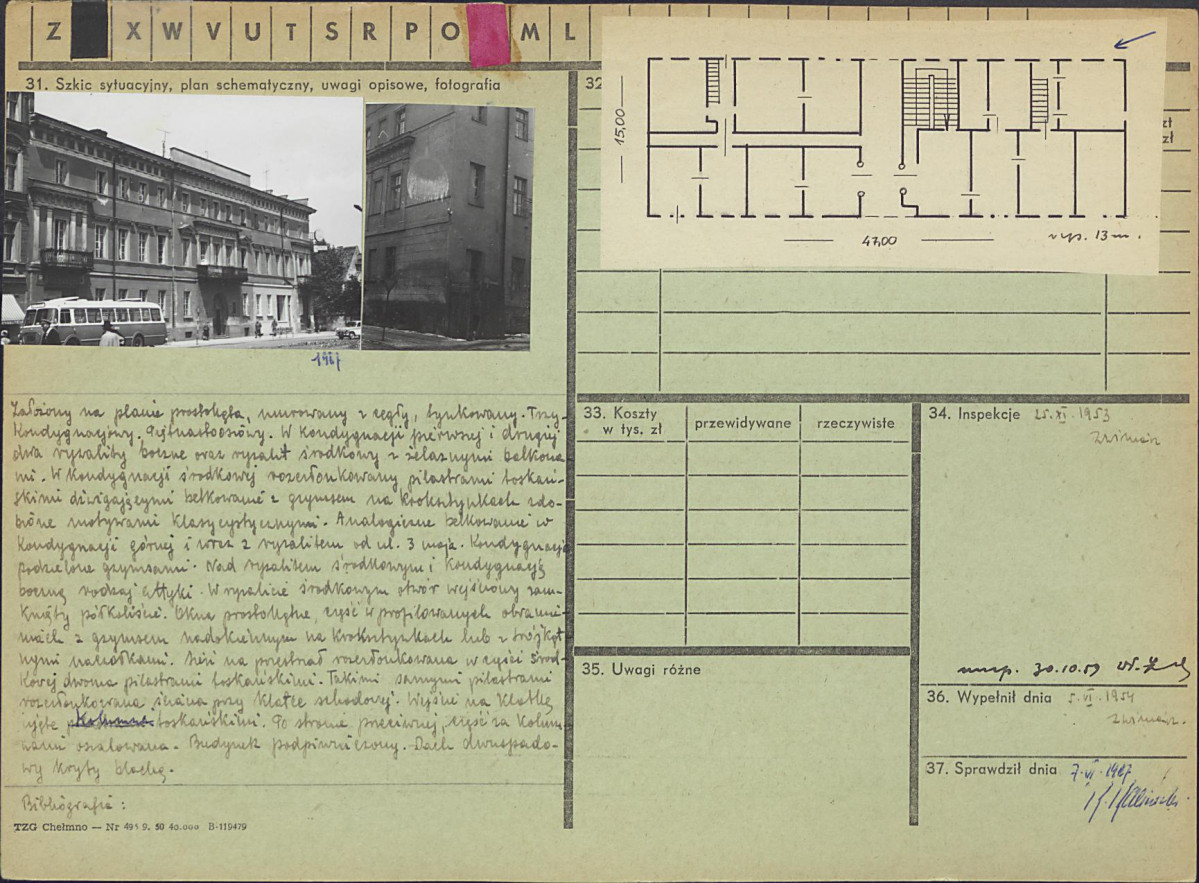 Z X W V U T S R P O M L
31. Szkic sytuacyjny, plan schematyczny, uwagi opisowe, fotografia
32
zł
zł
15,00
47,00
wys. 13 m.
1967
Założony na planie prostokąta, murowany z cegły, tynkowany. Trzy-
kondygnacjowy. Piętnastoosiowy. W kondygnacji pierwszej i drugiej
dwa ryzality boczne oraz ryzalit środkowy z żelaznymi balkona-
mi. W kondygnacji środkowej rozczłonkowany pilastrami toskań-
skimi dźwigającymi belkowanie z gzymsem na kroksztynkach zdo-
bione motywami klasycystycznymi. Analogiczne belkowanie w
kondygnacji górnej i wraz z ryzalitem od ul. 3 maja. Kondygnacje
podzielone gzymsami. Nad ryzalitem środkowym i kondygnacją
boczną rodzaj attyki. W ryzalicie środkowym otwór wejściowy zam-
knięty półkoliście. Okna prostokątne, część w profilowanych obramie-
niach z gzymsem nadokiennym na kroksztynkach lub z trójkąt-
nymi naczółkami. Sień na przestrzał rozczłonkowana w części środ-
kowej dwoma pilastrami toskańskimi. Takimi samymi pilastrami
rozczłonkowana ściana przy klatce schodowej. Wejście na klatkę
ujęte kolumna toskańskimi. Po stronie przeciwnej, część za kolum-
nami oszalowana. Budynek podpiwniczony. Dach dwuspado-
wy kryty blachą.
Bibliografia:
TZG Chełmno — Nr 495 9. 50 40.000 B-119479
33. Koszty w tys. zł
przewidywane
rzeczywiste
34. Inspekcje 25.XI.1953
30.10.59
35. Uwagi różne
36. Wypełnił dnia 5.VI.1954
37. Sprawdził dnia 7.VI.1967